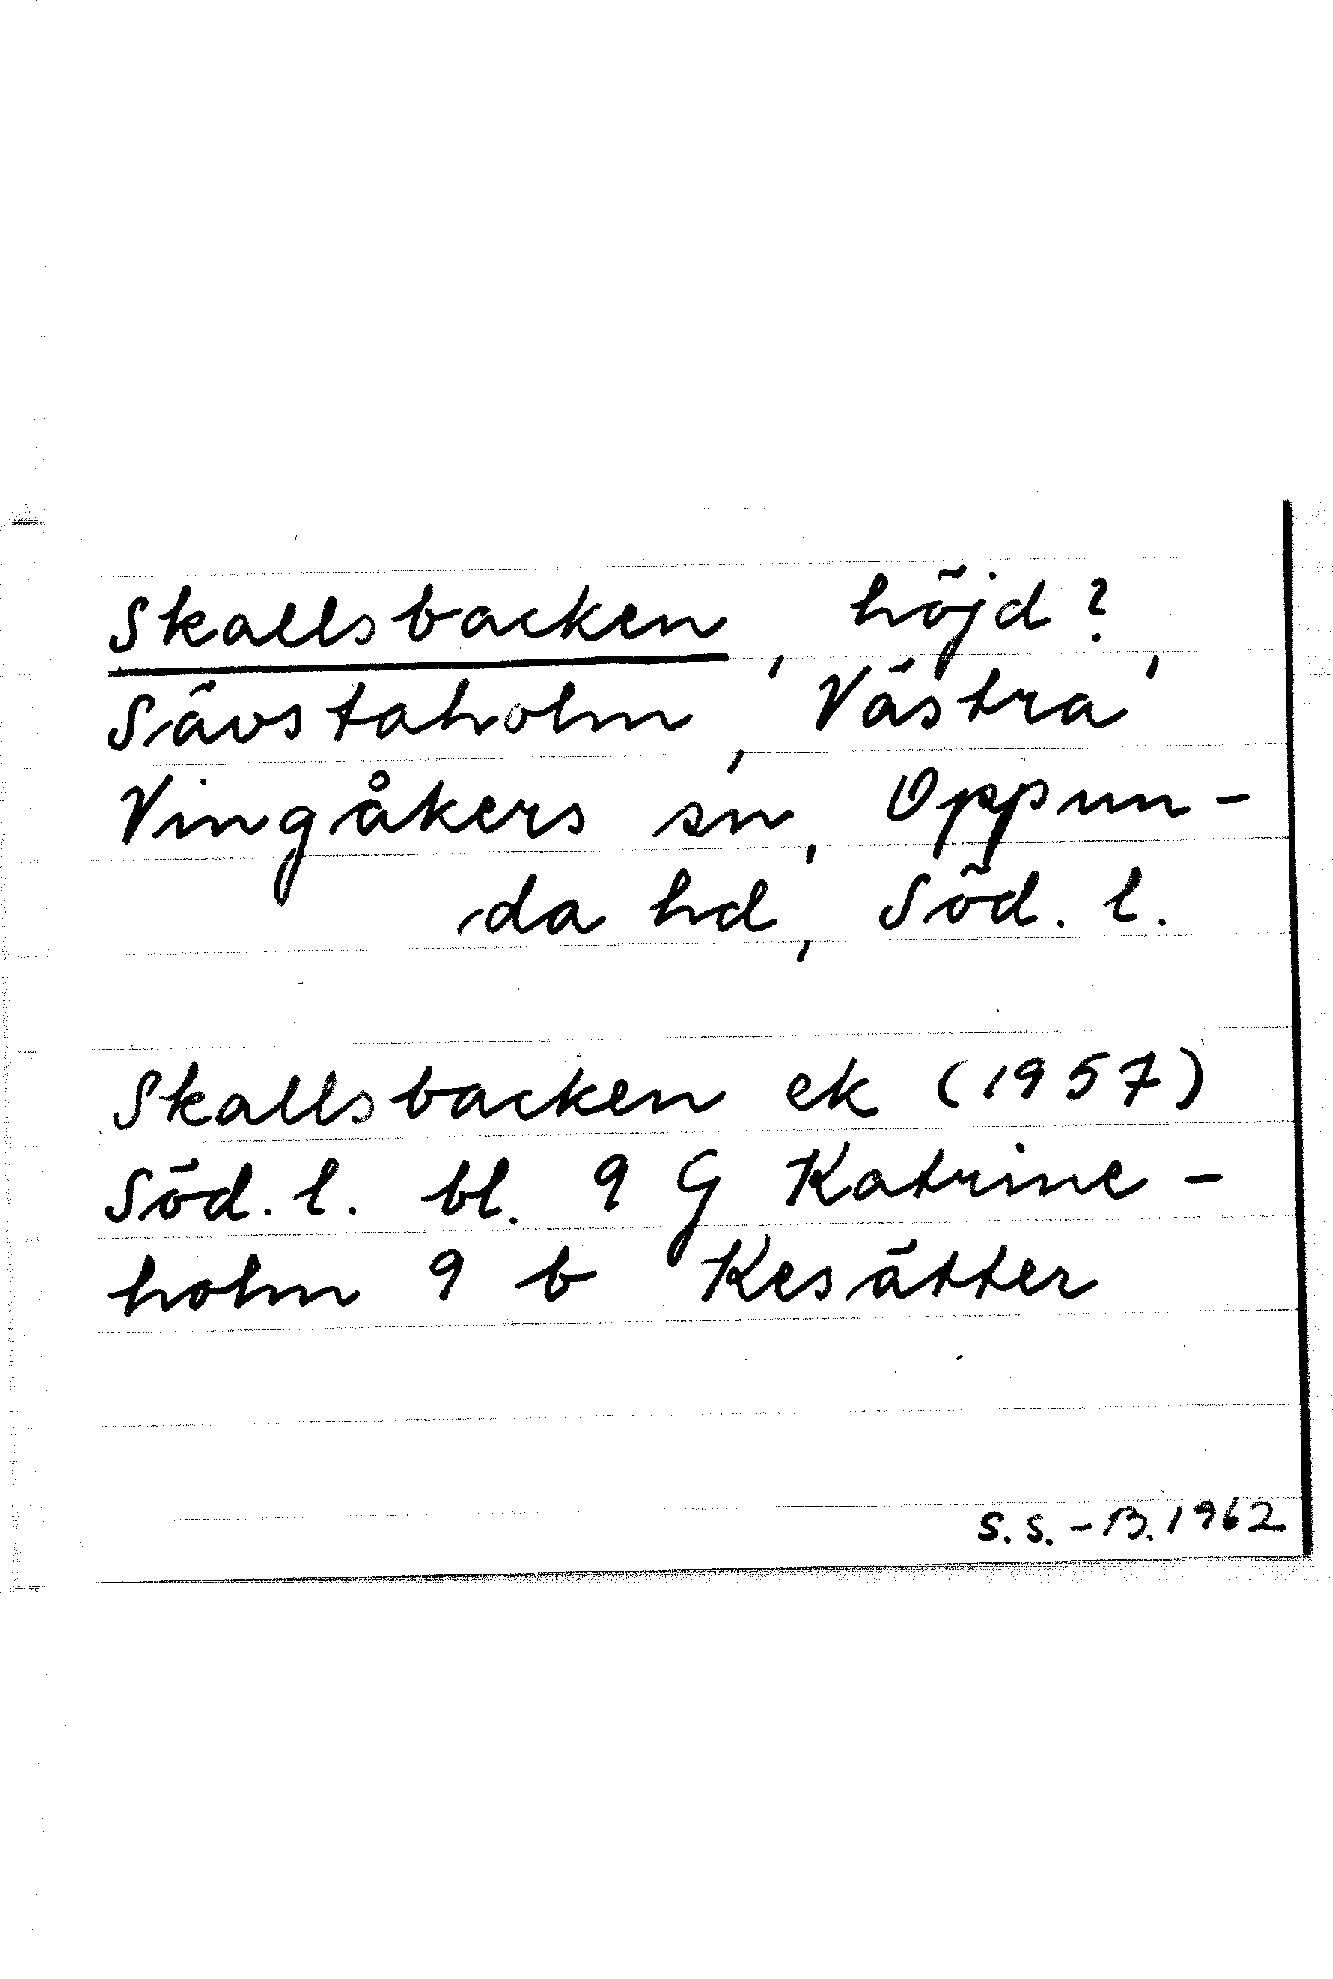 Skallsbacken, höjd?,
Sävstaholm, Västra
Vingåkers sn, Oppun-
da hd, Söd. l.
Skallsbacken ek (1957)
Söd. l. bl. 9 G Katrine-
holm 9 b Kesätter
S. S. - B. 1962